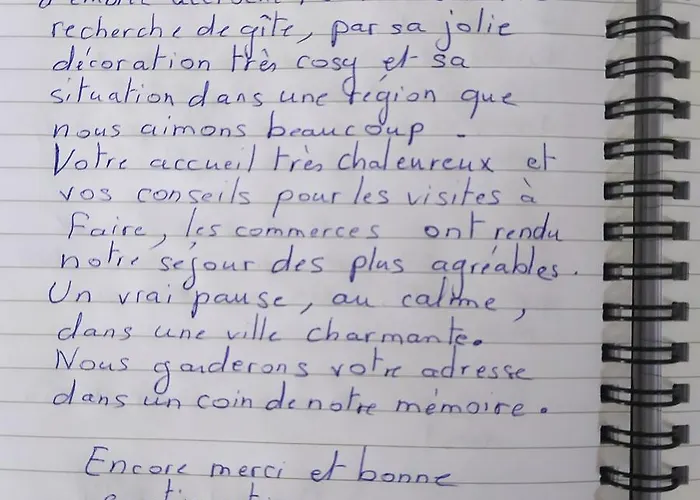 recherche de gîte, par sa jolie
décoration très cosy et sa
situation dans une région que
nous aimons beaucoup -
Votre accueil très chaleureux et
vos conseils pour les visites à
faire, les commerces ont rendu
notre séjour des plus agréables.
Un vrai pause, au calme,
dans une ville charmante.
Nous garderons votre adresse
dans un coin de notre mémoire.
Encore merci et bonne